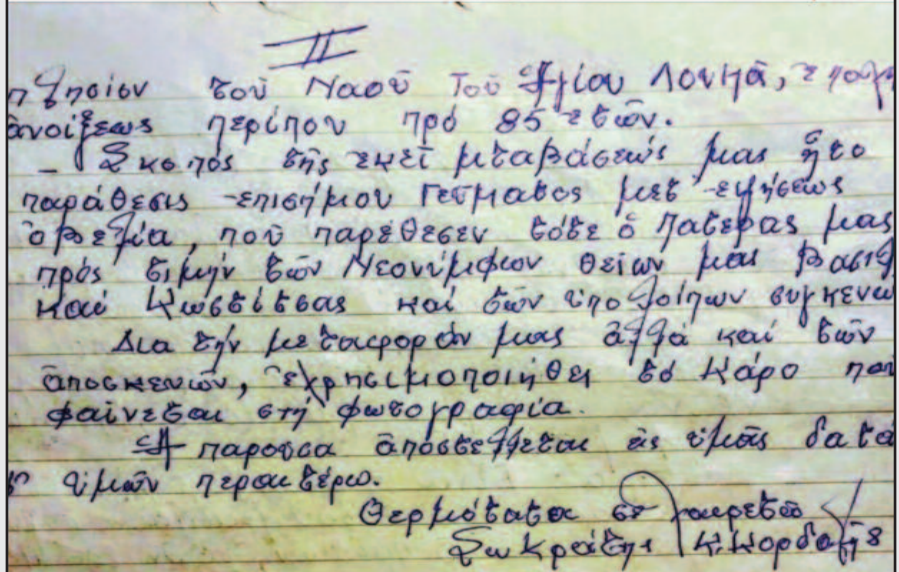 II
πλησίον τοῦ Ναοῦ Τοῦ Ἁγίου Λουκᾶ, ἐποχῆ
ἀνοίξεως περίπου πρό 85 ἐτῶν.
- Σκοπός τῆς ἐκεῖ μεταβάσεώς μας ἦτο
παράθεσις ἐπισήμου Γεύματος μετ'
ὀβελία, πού παρέθεσεν τότε ὁ Πατέρας μας
πρός τιμήν τῶν Νεονύμφων θείων μας Βασιλ
καί Κωστίτσας καί τῶν ὑπολοίπων συγκενῶ
Δια τήν μεταφοράν μας ἀλλά καί τῶν
ἀποσκευῶν, ἐχρησιμοποιήθει τό Κάρο πού
φαίνεται στή φωτογραφία.
Ἡ παροῦσα ἀποστέλλεται ὡς ὑμᾶς
ὑμῶν περαιτέρω.
Θερμότατα σέ χαιρετῶ
Σωκράτης Κ. Κορδα